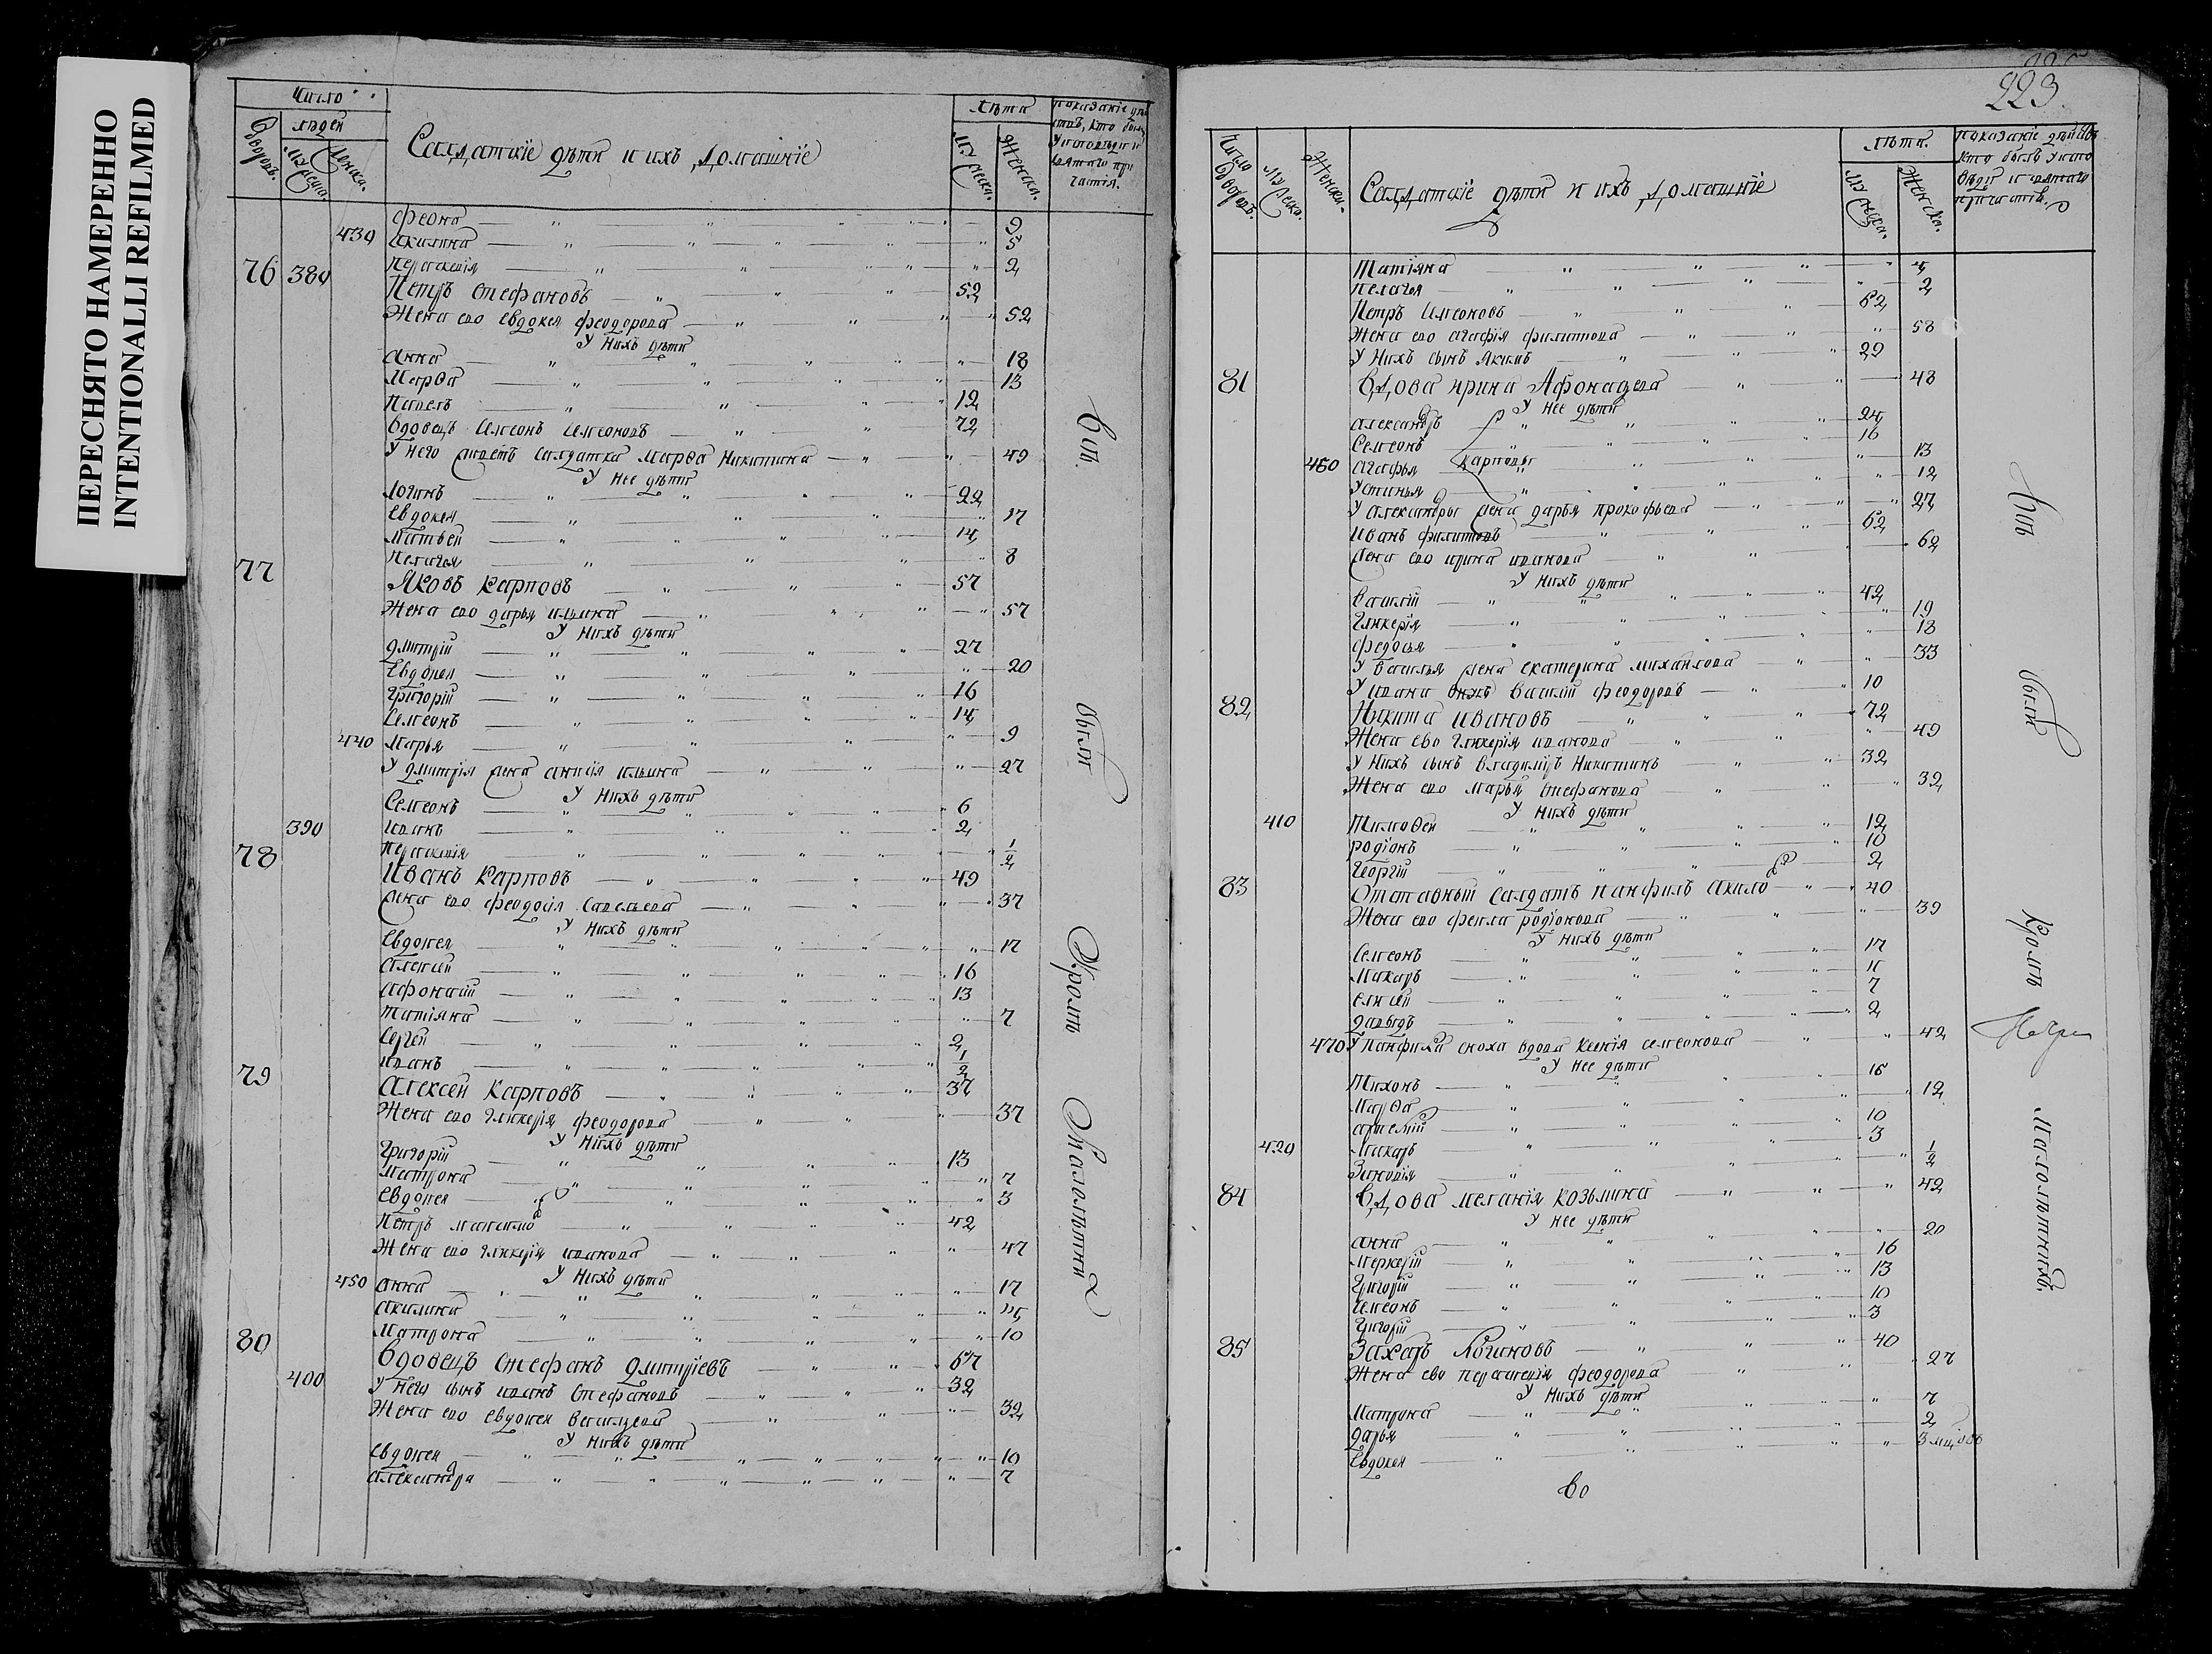 ПЕРЕСНЯТО НАМЕРЕННО
INTENTIONALLI REFILMED
Число
людей
Дворовъ.
Мужеска.
Женска.
Салдатскіе дѣти и ихъ домашніе
лѣта
Мужеска.
Женска.
показаніе
кто былъ
у исповѣди и
святаго при
частія.
феона 9
439 Акилина 5
Параскевія 2
76 380 Петръ Стефановъ 52
Жена ево Евдокея Феодорова 52
у нихъ дѣти
Анна 18
Марѳа 13
Павелъ 12
Вдовецъ Симеонъ Симеоновъ 72
у него салдатка Марѳа Никитина 49
у нее дѣти
Логинъ 22
Евдокея 17
Матвей 14
Пелагея 8
77 Яковъ Карповъ 57
Жена ево Дарья 57
у нихъ дѣти
Дмитрій 27
Евдокея 20
Григорій 16
Семеонъ 14
440 Марья 9
у Дмитрія жена Анисія Ильина 27
у нихъ дѣти
Семеонъ 6
390 Иванъ 2
Параскевія 1/2
78 Иванъ Карповъ 49
Жена ево Феодосія Савельева 37
у нихъ дѣти
Евдокея 17
Алексей 16
Афонасій 13
Татіяна 7
Сергей 2
Иванъ 1/2
79 Алексей Карповъ 37
Жена ево Гликерія Феодорова 37
у нихъ дѣти
Григорій 13
Матрона 7
Евдокея 3
Петръ Максимовъ 42
Жена ево Гликерія Иванова 47
у нихъ дѣти
450 Анна 17
Акилина
Матрона 10
80 Вдовецъ Стефанъ Дмитріевъ 67
400 у него сынъ Иванъ Стефановъ 32
Жена ево Евдокея Васильева 32
у нихъ дѣти
Евдокея 10
Александра 7
всѣ
были
Кромѣ
Малолѣтнихъ
223
Число
Дворовъ.
Мужеска.
Женска.
Салдатскіе дѣти и ихъ домашніе
лѣта.
Мужеска.
Женска.
показаніе дѣйства
кто былъ у испо
вѣди и святаго
причастія.
Татіяна 4
Пелагея 2
Петръ Симеоновъ 62
Жена ево Агафія Филиппова 58
у нихъ сынъ Якимъ 22
81 Вдова Ирина Афонасьева 48
у нее дѣти
Александръ 24
Семеонъ 16
460 Агафья Карповы 13
Устинья 12
у Александры жена Дарья Прокофьева 27
Иванъ Филиповъ 62
Жена ево Ирина Иванова 62
у нихъ дѣти
Василій 42
Гликерія 19
Федосья 18
у Василья жена Екатерина Михайлова 33
у Ивана внукъ Василій Феодоровъ 10
82 Никита Ивановъ 72
Жена ево Гликерія Иванова 49
у нихъ сынъ Владимиръ Никитинъ 32
Жена ево Марья Стефанова 32
у нихъ дѣти
410 Тимоѳей 12
Родіонъ 10
Георгій 2
83 Отставный Салдатъ Панфилъ Акиловъ 40
Жена ево Фекла Родіонова 39
у нихъ дѣти
Семеонъ 17
Макаръ 11
Елисей 7
Давыдъ 2
470 у Панфила сноха вдова Ксенія Семеонова 42
у нее дѣти
Тихонъ 16
Марѳа 12
Артемій 10
420 Макаръ 3
Зиновія 1/2
84 Вдова Меланія Козьмина 42
у нее дѣти
Анна 20
Меркерій 16
Григорій 13
Симеонъ 10
Григорій 3
85 Захаръ Логиновъ 40
Жена ево Параскевія Феодорова 27
у нихъ дѣти
Матрона 7
Дарья 2
Евдокея 3
всѣ
были
Кромѣ
Малолѣтнихъ
Во